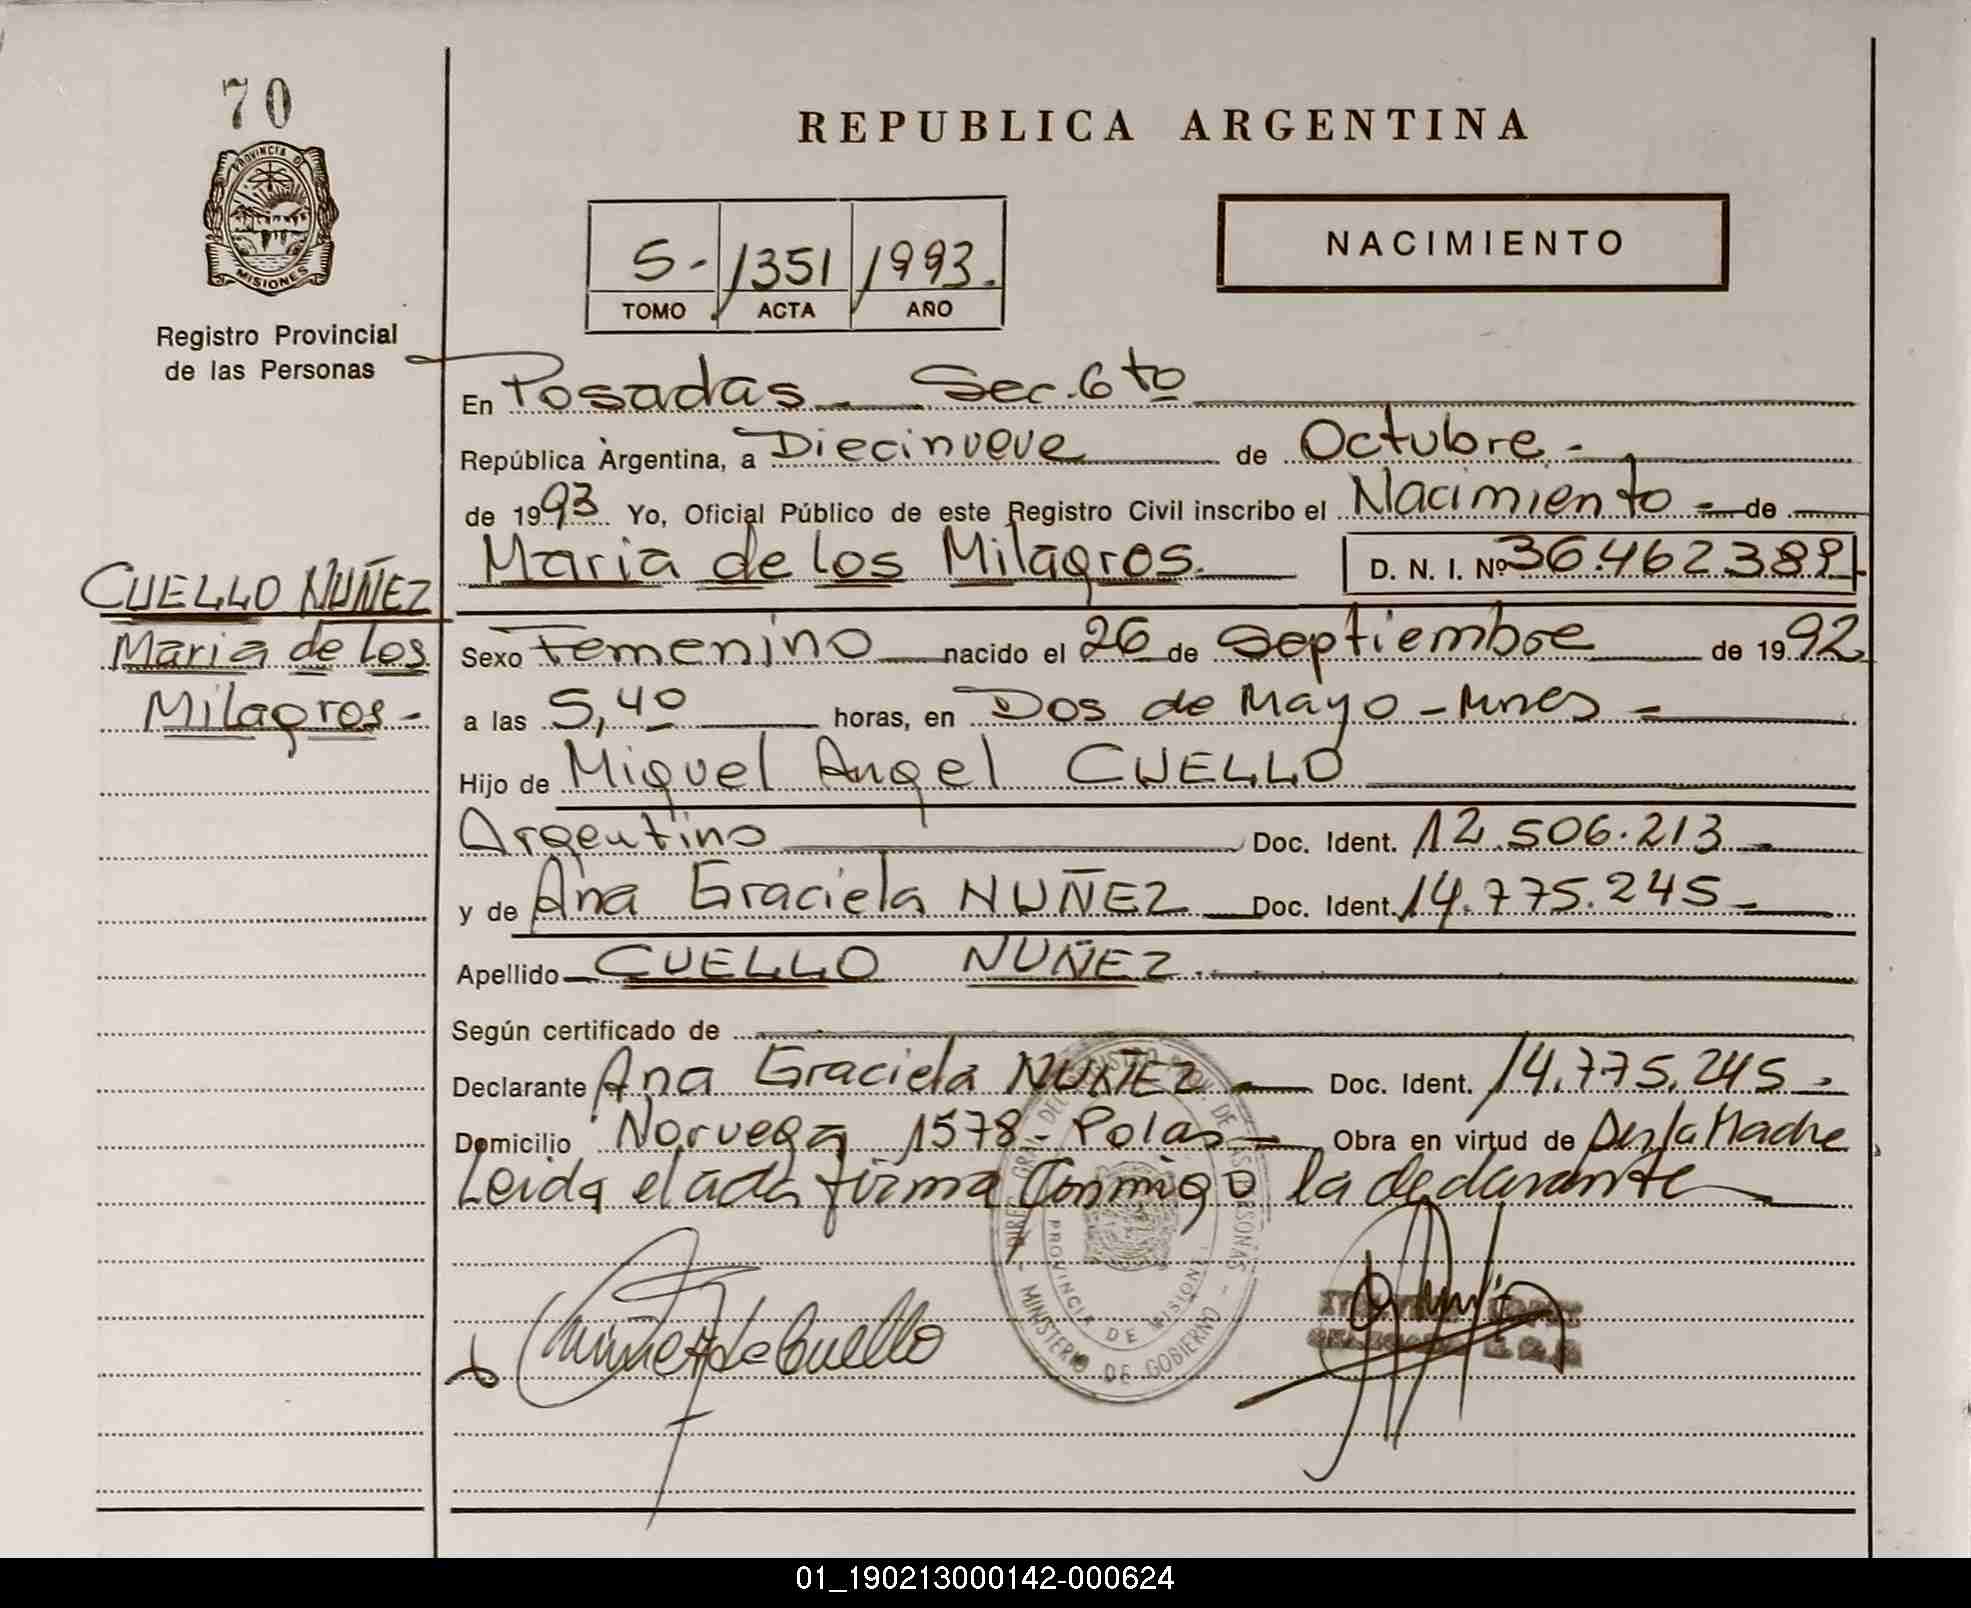 70
PROVINCIA D
MISIONES
Registro Provincial
de las Personas
CUELLO NUÑEZ
Maria de los
Milagros -
REPUBLICA ARGENTINA
5 - 1351 1993.
TOMO ACTA AÑO
NACIMIENTO
En Posadas - Sec. 6to
República Argentina, a Diecinueve de Octubre -
de 1993 Yo, Oficial Público de este Registro Civil inscribo el Nacimiento - de
Maria de los Milagros. D. N. I. Nº 36.462.389
Sexo Femenino nacido el 26 de Septiembre de 1992
a las 5,40 horas, en Dos de Mayo - Mnes -
Hijo de Miguel Angel CUELLO
Argentino Doc. Ident. 12.506.213 -
y de Ana Graciela NUÑEZ Doc. Ident. 14.775.245 -
Apellido CUELLO NUÑEZ.
Según certificado de
Declarante Ana Graciela NUÑEZ - Doc. Ident. 14.775.245 -
Domicilio Norvega 1578 - Polas - Obra en virtud de la Madre
Leida el acta firma Conmigo la declarante
PROVINCIA DE MISIONES
MINISTERIO DE GOBIERNO
Nuñez de Cuello
01_190213000142-000624